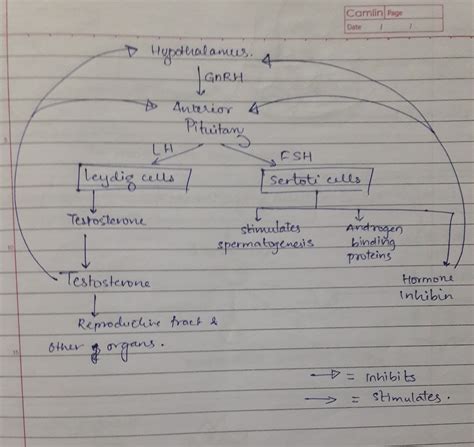 Camlin Page
Date / /
Hypothalamus.
GnRH
Anterior
Pituitary
LH
FSH
Leydig cells
Sertoti cells
Testosterone
stimulates
spermatogenesis
Androgen
binding
proteins
Testosterone
Hormone
Inhibin
Reproductive tract &
other organs.
= Inhibits
= stimulates.